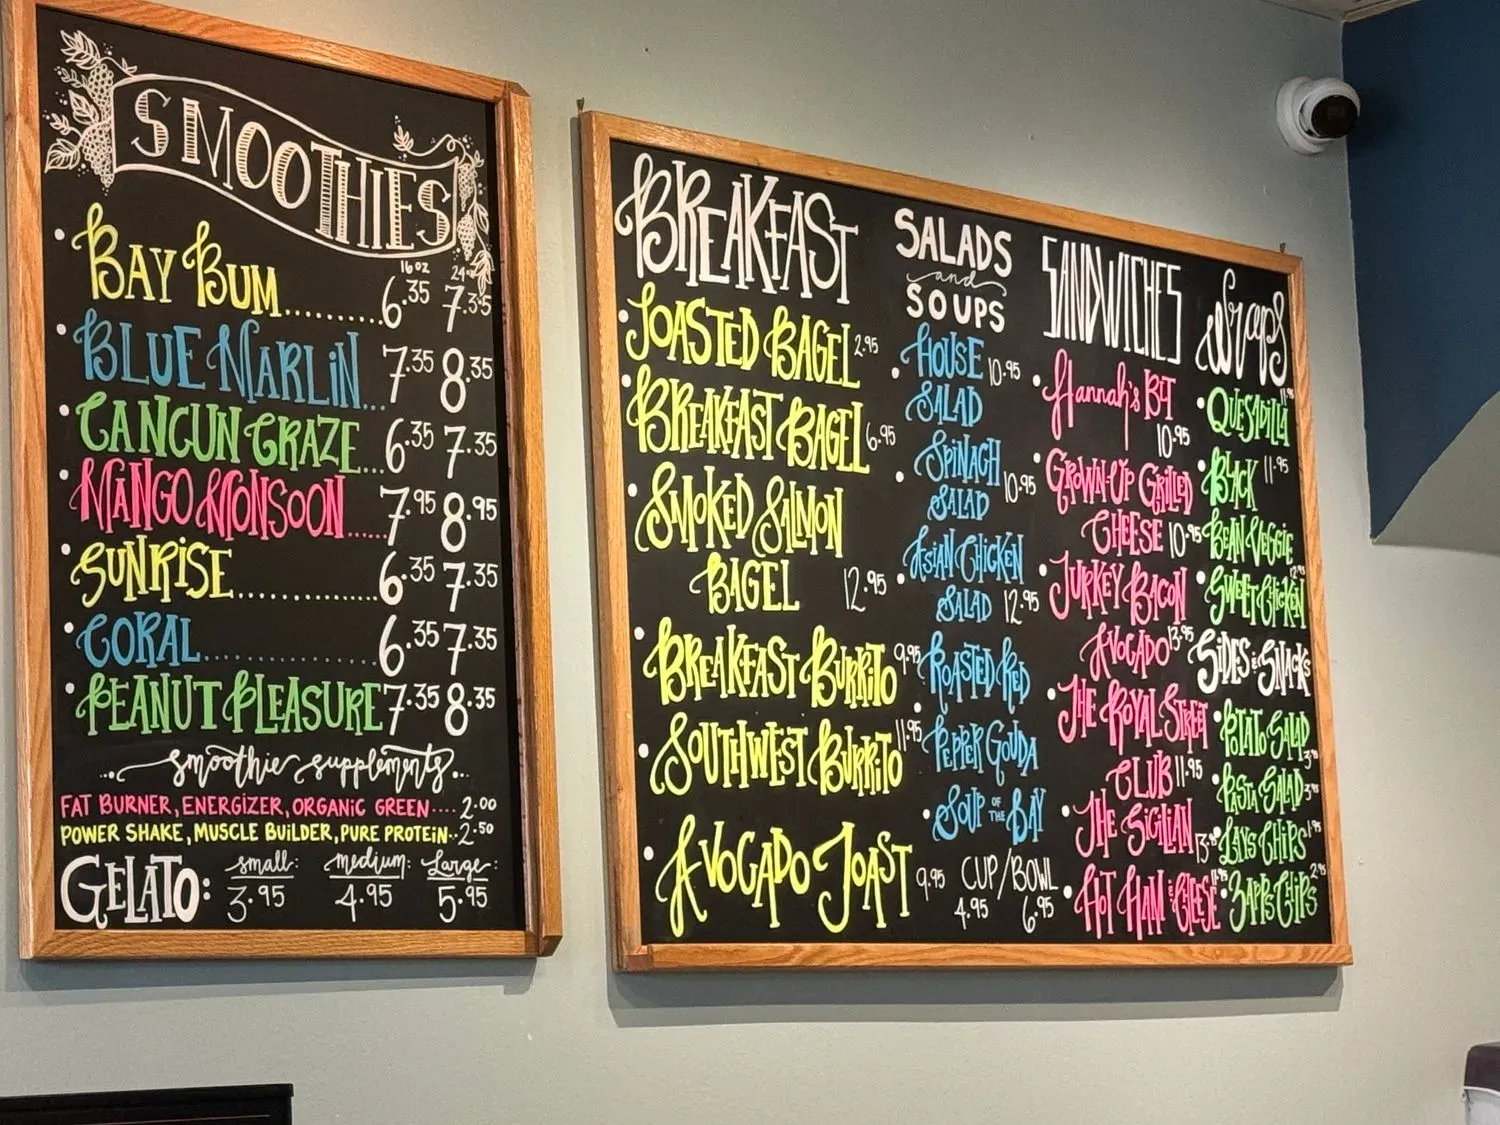 SMOOTHIES
16oz 24oz
• BAY BUM.......... 6.35 7.35
• BLUE MARLIN... 7.35 8.35
• CANCUN CRAZE... 6.35 7.35
• MANGO MONSOON..... 7.95 8.95
• SUNRISE.............. 6.35 7.35
• CORAL................. 6.35 7.35
• PEANUT PLEASURE 7.35 8.35
...smoothie supplements...
FAT BURNER, ENERGIZER, ORGANIC GREEN.... 2.00
POWER SHAKE, MUSCLE BUILDER, PURE PROTEIN.. 2.50
GELATO: small: medium: Large:
3.95 4.95 5.95
BREAKFAST
• TOASTED BAGEL 2.95
• BREAKFAST BAGEL 6.95
• SMOKED SALMON
BAGEL 12.95
• BREAKFAST BURRITO 9.95
• SOUTHWEST BURRITO 11.95
• AVOCADO TOAST 9.95
SALADS
and
SOUPS
• HOUSE 10.95
SALAD
• SPINACH
SALAD 10.95
• ASIAN CHICKEN
SALAD 12.95
• ROASTED RED
PEPPER GOUDA
• SOUP OF THE DAY
CUP/BOWL
4.95 6.95
SANDWICHES
• Hannah's BLT
10.95
• GROWN-UP GRILLED
CHEESE 10.95
• TURKEY BACON
AVOCADO 13.95
• THE ROYAL STREET
CLUB 11.95
• THE SICILIAN
• HOT HAM & CHEESE 11.95
Wraps
• QUESADILLA 11.95
• BLACK 11.95
BEAN VEGGIE
• SWEET CHICKEN 12.95
SIDES & SNACKS
• POTATO SALAD 3.95
• PASTA SALAD 3.95
• LAYS CHIPS 1.95
• ZAPPS CHIPS 2.95